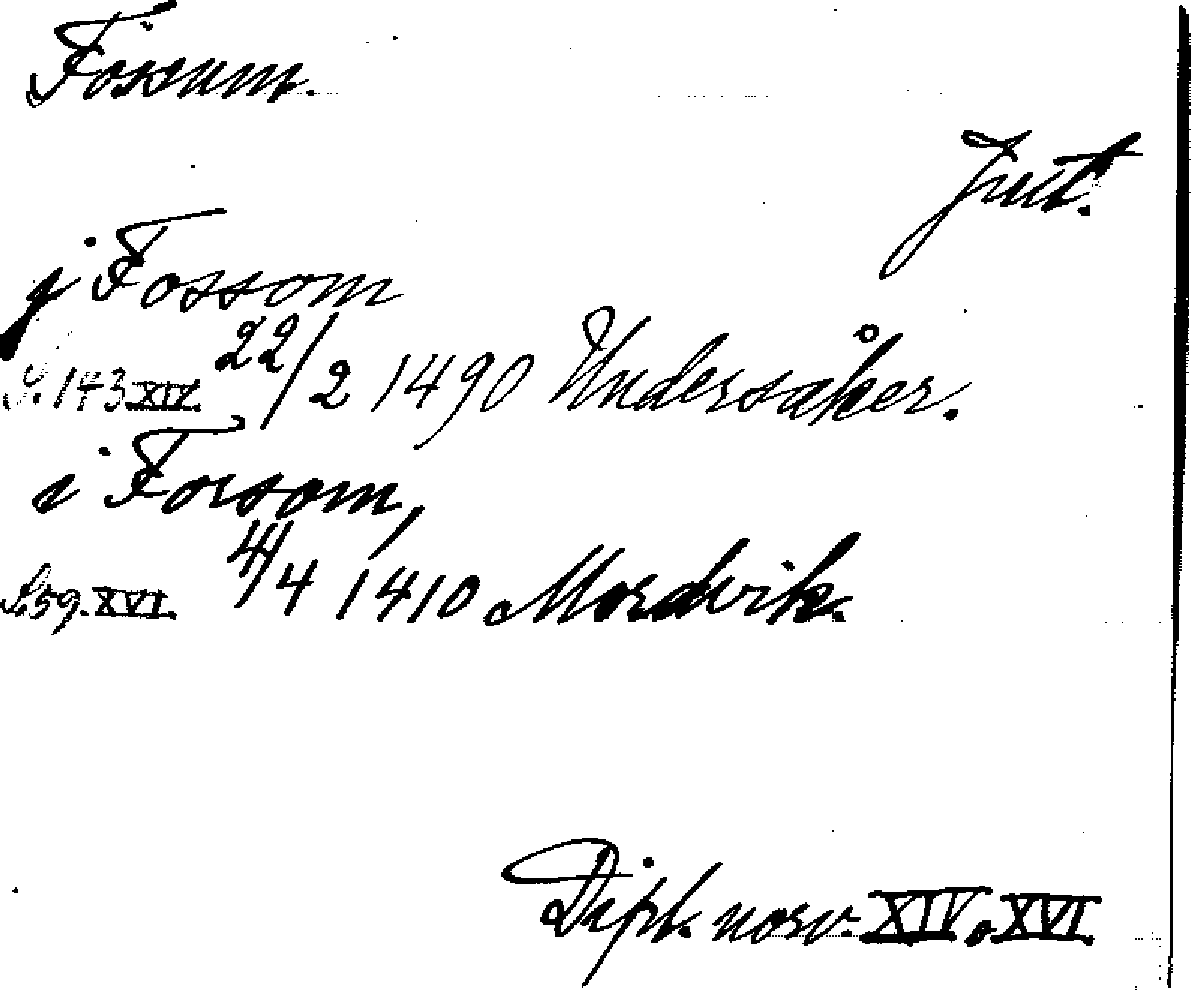 Fossum.
Jmt.
j Fossom
S. 143 XIV. 22/2 1490 Undersåker.
i Forsom,
S. 59. XVI. 4/4 1410 Mordvik.
Dipl. norv. XIV o XVI